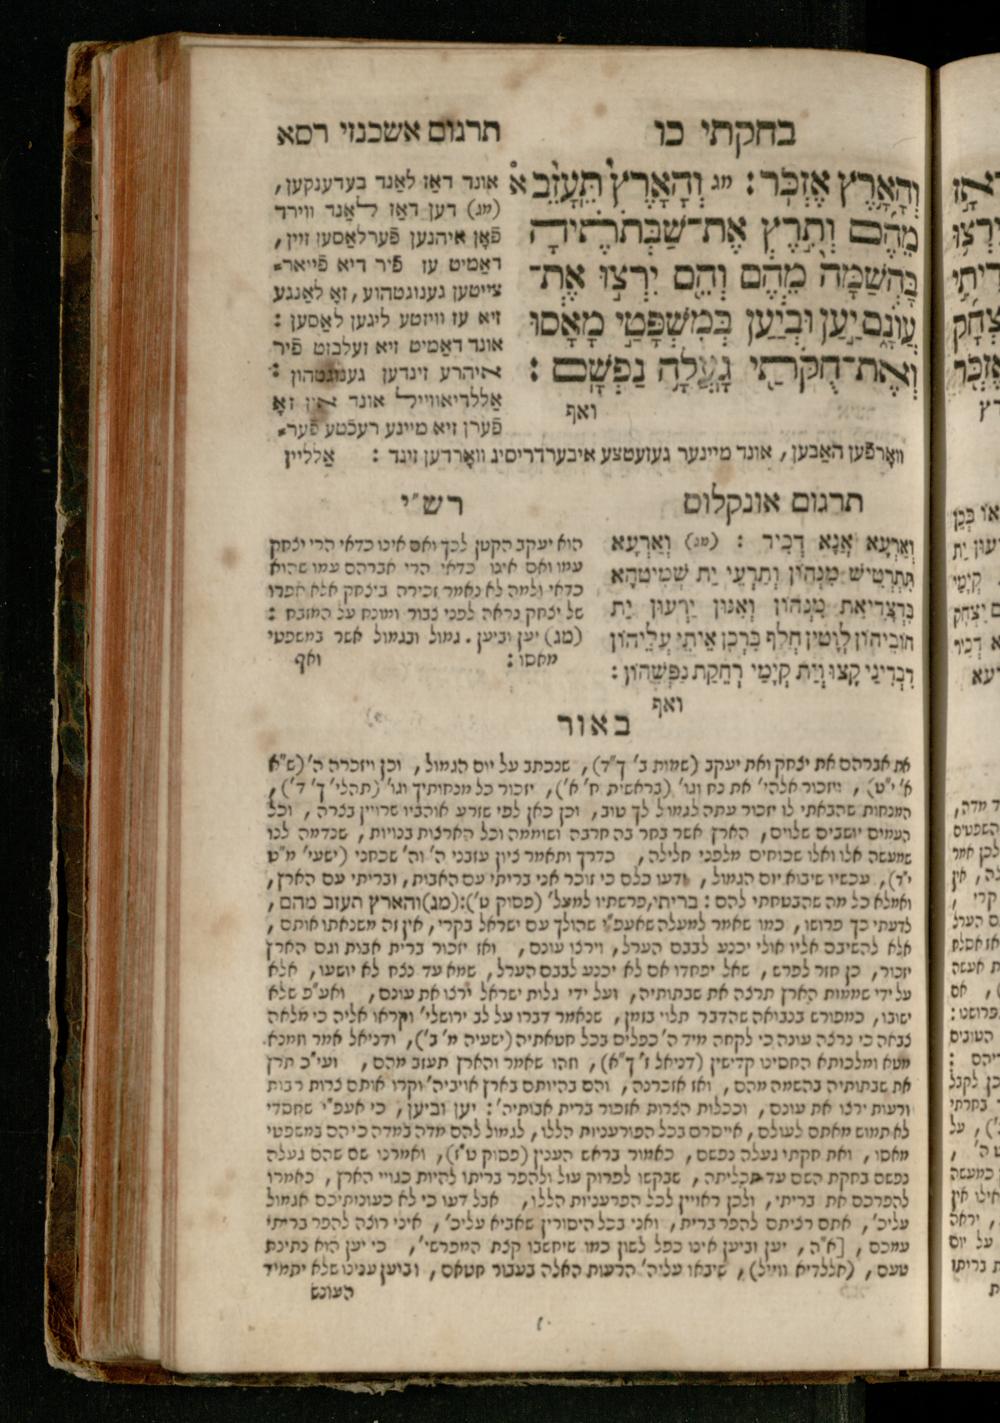 בחקתי כו
תרגום אשכנזי רסא
וְהָאָרֶץ אֶזְכֹּר׃ מג וְהָאָרֶץ תֵּעָזֵב
מֵהֶם וְתִרֶץ אֶת־שַׁבְּתֹתֶיהָ
בָּהְשַׁמָּה מֵהֶם וְהֵם יִרְצוּ אֶת־
עֲוֺנָם יַעַן וּבְיַעַן בְּמִשְׁפָּטַי מָאָסוּ
וְאֶת־חֻקֹּתַי גָּעֲלָה נַפְשָׁם׃
ואף
אונד דאַז לאַנד בעדענקען,
(מג) דען דאַז לאַנד ווירד
פֿאָן איהנען פֿערלאַסען זיין,
דאַמיט עז פֿיר דיא פֿייאר⸗
צייטען גענוגטהוע, זאָ לאַנגע
זיא עז וויזטע ליגען לאַסען :
אונד דאַמיט זיא זעלבזט פֿיר
איהרע זינדען גענוגטהון :
אַללדיאווייל אונד אין זאָ
פֿערן זיא מיינע רעכֿטע פֿער⸗
וואָרפֿען האַבען, אונד מיינער געזעטצע איבערדריסיג וואָרדען זינד : אַלליין
תרגום אונקלוס
וְאַרְעָא אֲנָא דְכִיר : (מג) וְאַרְעָא
תִּתְרְטִישׁ מִנְּהוֹן וְתַרְעֵי יַת שְׁמִיטַהָא
בִּדְצָדִיאַת מִנְּהוֹן וְאִנּוּן יִרְעוּן יַת
חוֹבֵיהוֹן לְוָטִין חֲלַף בִּרְכָן אַיְתִי עֲלֵיהוֹן
דִּבְדִינַי קָצוּ וְיַת קְיָמַי רְחֵקַת נַפְשְׁהוֹן :
ואף
רש"י
הוא יעקב הקטן לכך ואם אינו כדאי הרי יצחק
עמו ואם אינו כדאי הרי אברהם עמו שהוא
כדאי ולמה לא נאמר זכירה ביצחק אלא אפרו
של יצחק נראה לפני צבור ומונח על המזבח :
(מג) יען וביען. גמול ובגמול אשר במשפטי
מאסו : ואף
באור
את אברהם את יצחק ואת יעקב (שמות ב' ך"ד), שנכתב על יום הגמול, וכן ויזכרה ה' (ש"א
א' י"ט), ויזכור אלהי' את נח וגו' (בראשית ח' א'), יזכור כל מנחותיך וגו' (תהלי' ך' ד'),
המנחות שהבאתי לו יזכור עתה לגמול לך טוב, וכן כאן לפי שזרע אוהביו שרויין בצרה, וכל
העמים יושבים שלוים, הארץ אשר בחר בה חרבה ושוממה וכל הארצות בנויות, שנדמה לנו
שמעשה אלו ואלו שכוחים מלפני חלילה, כדרך ותאמר ציון עזבני ה' וה' שכחני (ישעי' מ"ט
י"ד), עכשיו שיבוא יום הגמול, ידעו כלם כי זוכר אני בריתי עם האבות, ובריתי עם הארץ,
ואמלא כל מה שהבטחתי להם : בריתי, פרשתיו למעל' (פסוק ט'): (מג) והארץ תעזב מהם,
לדעתי כך פרושו, כמו שאמר למעלה שאעפ"י שהולך עם ישראל בקרי, אין זה משנאתו אותם,
אלא להשיבם אליו אולי יכנע לבבם הערל, וירצו עונם, ואז יזכור ברית אבות וגם הארץ
יזכור, כן חזר לפרש, שאל יפחדו אם לא יכנע לבבם הערל, שמא עד נצח לא יושעו, אלא
על ידי שממות הארץ תרצה את שבתותיה, ועל ידי גלות ישראל ירצו את עונם, ואע"פ שלא
ישובו, כמפורש בנבואה שהדבר תלוי בזמן, שנאמר דברו על לב ירושלי' וקראו אליה כי מלאה
צבאה כי נרצה עונה כי לקחה מיד ה' כפלים בכל חטאתיה (ישעיה מ' ב'), ודניאל אמר וזמנא
מטא ומלכותא החסינו קדישין (דניאל ז' ך"א), וזהו שאמר והארץ תעזב מהם, ועי"כ תרץ
את שבתותיה בהשמה מהם, ואז אזכרנה, והם בהיותם בארץ אויביה' וקרו אותם צרות רבות
ורעות ירצו את עונם, וככלות הצרות אזכור ברית אבותיה' : יען וביען, כי אעפ"י שחסדי
לא תמוש מאתם לעולם, אייסרם בכל הפורעניות הללו, לגמול להם מדה במדה כי הם במשפטי
מאסו, ואת חקתי געלה נפשם, כאמור בראש הענין (פסוק ט"ו), ואמרנו שם שהם געלה
נפשם בחקת השם עד תכליתה, שבקשו לפרוק עול ולהפר בריתו להיות כגויי הארץ, כאמרו
להפרכם את בריתי, ולכן ראויין לכל הפרעניות הללו, אבל דעו כי לא כעונותיכם אגמול
עליכ', אתם רציתם להפר ברית, ואני בכל היסורין שאביא עליכ', איני רוצה להפר בריתי
עמכם, [א"ה, יען וביען אינו כפל לשון כמו שיחשבו קצת המפרשי', כי יען הוא נתינת
טעם, (אללדיא ווייל), שיבאו עליה' הרעות האלה בעבור חטאם, וביען ענינו שלא יתמיד
העונש